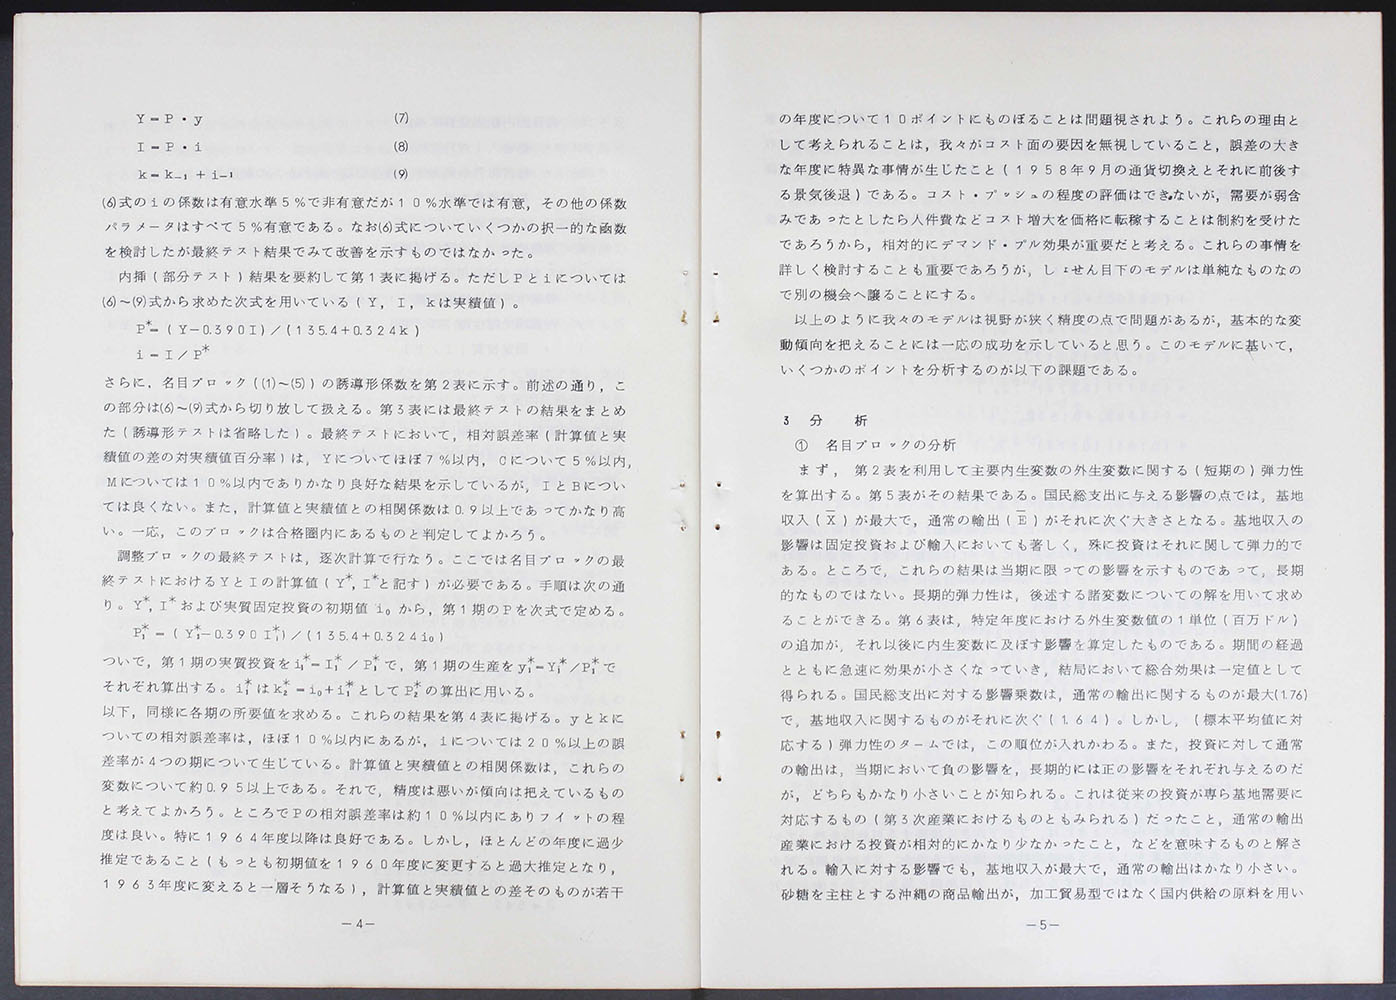 Y=P・y (7)
I=P・i (8)
k=k₋₁+i₋₁ (9)
(6)式のiの係数は有意水準5%で非有意だが10%水準では有意，その他の係数
パラメータはすべて5%有意である。なお(6)式についていくつかの択一的な函数
を検討したが最終テスト結果でみて改善を示すものではなかった。
内挿(部分テスト)結果を要約して第1表に掲げる。ただしPとiについては
(6)～(9)式から求めた次式を用いている(Y，I，kは実績値)。
P*=(Y-0.390I)/(135.4+0.324k)
i=I/P*
さらに，名目ブロック((1)～(5))の誘導形係数を第2表に示す。前述の通り，こ
の部分は(6)～(9)式から切り放して扱える。第3表には最終テストの結果をまとめ
た(誘導形テストは省略した)。最終テストにおいて，相対誤差率(計算値と実
績値の差の対実績値百分率)は，Yについてほぼ7%以内，Cについて5%以内，
Mについては10%以内でありかなり良好な結果を示しているが，IとBについ
ては良くない。また，計算値と実績値との相関係数は0.9以上であってかなり高
い。一応，このブロックは合格圏内にあるものと判定してよかろう。
調整ブロックの最終テストは，逐次計算で行なう。ここでは名目ブロックの最
終テストにおけるYとIの計算値(Y*，I*と記す)が必要である。手順は次の通
り。Y*，I*および実質固定投資の初期値i₀から，第1期のPを次式で定める。
P₁*=(Y₁*-0.390I₁*)/(135.4+0.324i₀)
ついで，第1期の実質投資をi₁*=I₁*/P₁*で，第1期の生産をy₁*=Y₁*/P₁*で
それぞれ算出する。i₁*はk₂*=i₀+i₁*としてP₂*の算出に用いる。
以下，同様に各期の所要値を求める。これらの結果を第4表に掲げる。yとkに
ついての相対誤差率は，ほぼ10%以内にあるが，iについては20%以上の誤
差率が4つの期について生じている。計算値と実績値との相関係数は，これらの
変数について約0.95以上である。それで，精度は悪いが傾向は把えているもの
と考えてよかろう。ところでPの相対誤差率は約10%以内にありフイットの程
度は良い。特に1964年度以降は良好である。しかし，ほとんどの年度に過少
推定であること(もっとも初期値を1960年度に変更すると過大推定となり，
1963年度に変えると一層そうなる)，計算値と実績値との差そのものが若干
—4—
の年度について10ポイントにものぼることは問題視されよう。これらの理由と
して考えられることは，我々がコスト面の要因を無視していること，誤差の大き
な年度に特異な事情が生じたこと(1958年9月の通貨切換えとそれに前後す
る景気後退)である。コスト・プッシュの程度の評価はできないが，需要が弱含
みであったとしたら人件費などコスト増大を価格に転稼することは制約を受けた
であろうから，相対的にデマンド・プル効果が重要だと考える。これらの事情を
詳しく検討することも重要であろうが，しょせん目下のモデルは単純なものなの
で別の機会へ譲ることにする。
以上のように我々のモデルは視野が狭く精度の点で問題があるが，基本的な変
動傾向を把えることには一応の成功を示していると思う。このモデルに基いて，
いくつかのポイントを分析するのが以下の課題である。
3 分　析
① 名目ブロックの分析
まず，第2表を利用して主要内生変数の外生変数に関する(短期の)弾力性
を算出する。第5表がその結果である。国民総支出に与える影響の点では，基地
収入(X̄)が最大で，通常の輸出(Ē)がそれに次ぐ大きさとなる。基地収入の
影響は固定投資および輸入においても著しく，殊に投資はそれに関して弾力的で
ある。ところで，これらの結果は当期に限っての影響を示すものであって，長期
的なものではない。長期的弾力性は，後述する諸変数についての解を用いて求め
ることができる。第6表は，特定年度における外生変数値の1単位(百万ドル)
の追加が，それ以後に内生変数に及ぼす影響を算定したものである。期間の経過
とともに急速に効果が小さくなっていき，結局において総合効果は一定値として
得られる。国民総支出に対する影響乗数は，通常の輸出に関するものが最大(1.76)
で，基地収入に関するものがそれに次ぐ(1.64)。しかし，(標本平均値に対
応する)弾力性のタームでは，この順位が入れかわる。また，投資に対して通常
の輸出は，当期において負の影響を，長期的には正の影響をそれぞれ与えるのだ
が，どちらもかなり小さいことが知られる。これは従来の投資が専ら基地需要に
対応するもの(第3次産業におけるものともみられる)だったこと，通常の輸出
産業における投資が相対的にかなり少なかったこと，などを意味するものと解さ
れる。輸入に対する影響でも，基地収入が最大で，通常の輸出はかなり小さい。
砂糖を主柱とする沖縄の商品輸出が，加工貿易型ではなく国内供給の原料を用い
—5—